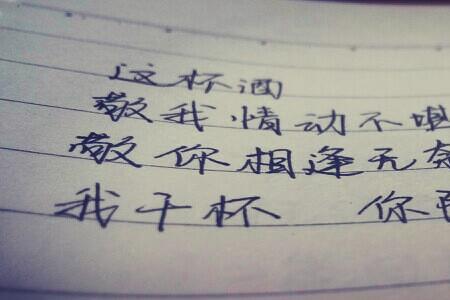 这杯酒
敬我情动不
敬你相逢无
我干杯 你